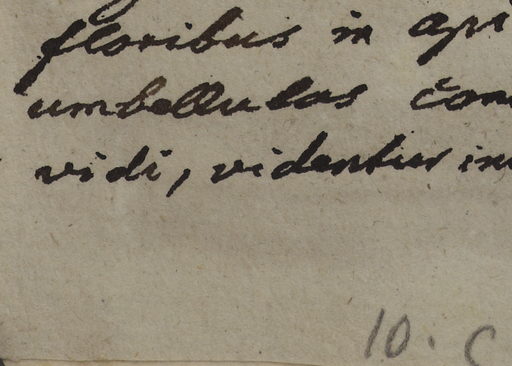 floribus in api
umbellulas con
vidi, videntur in
10. C